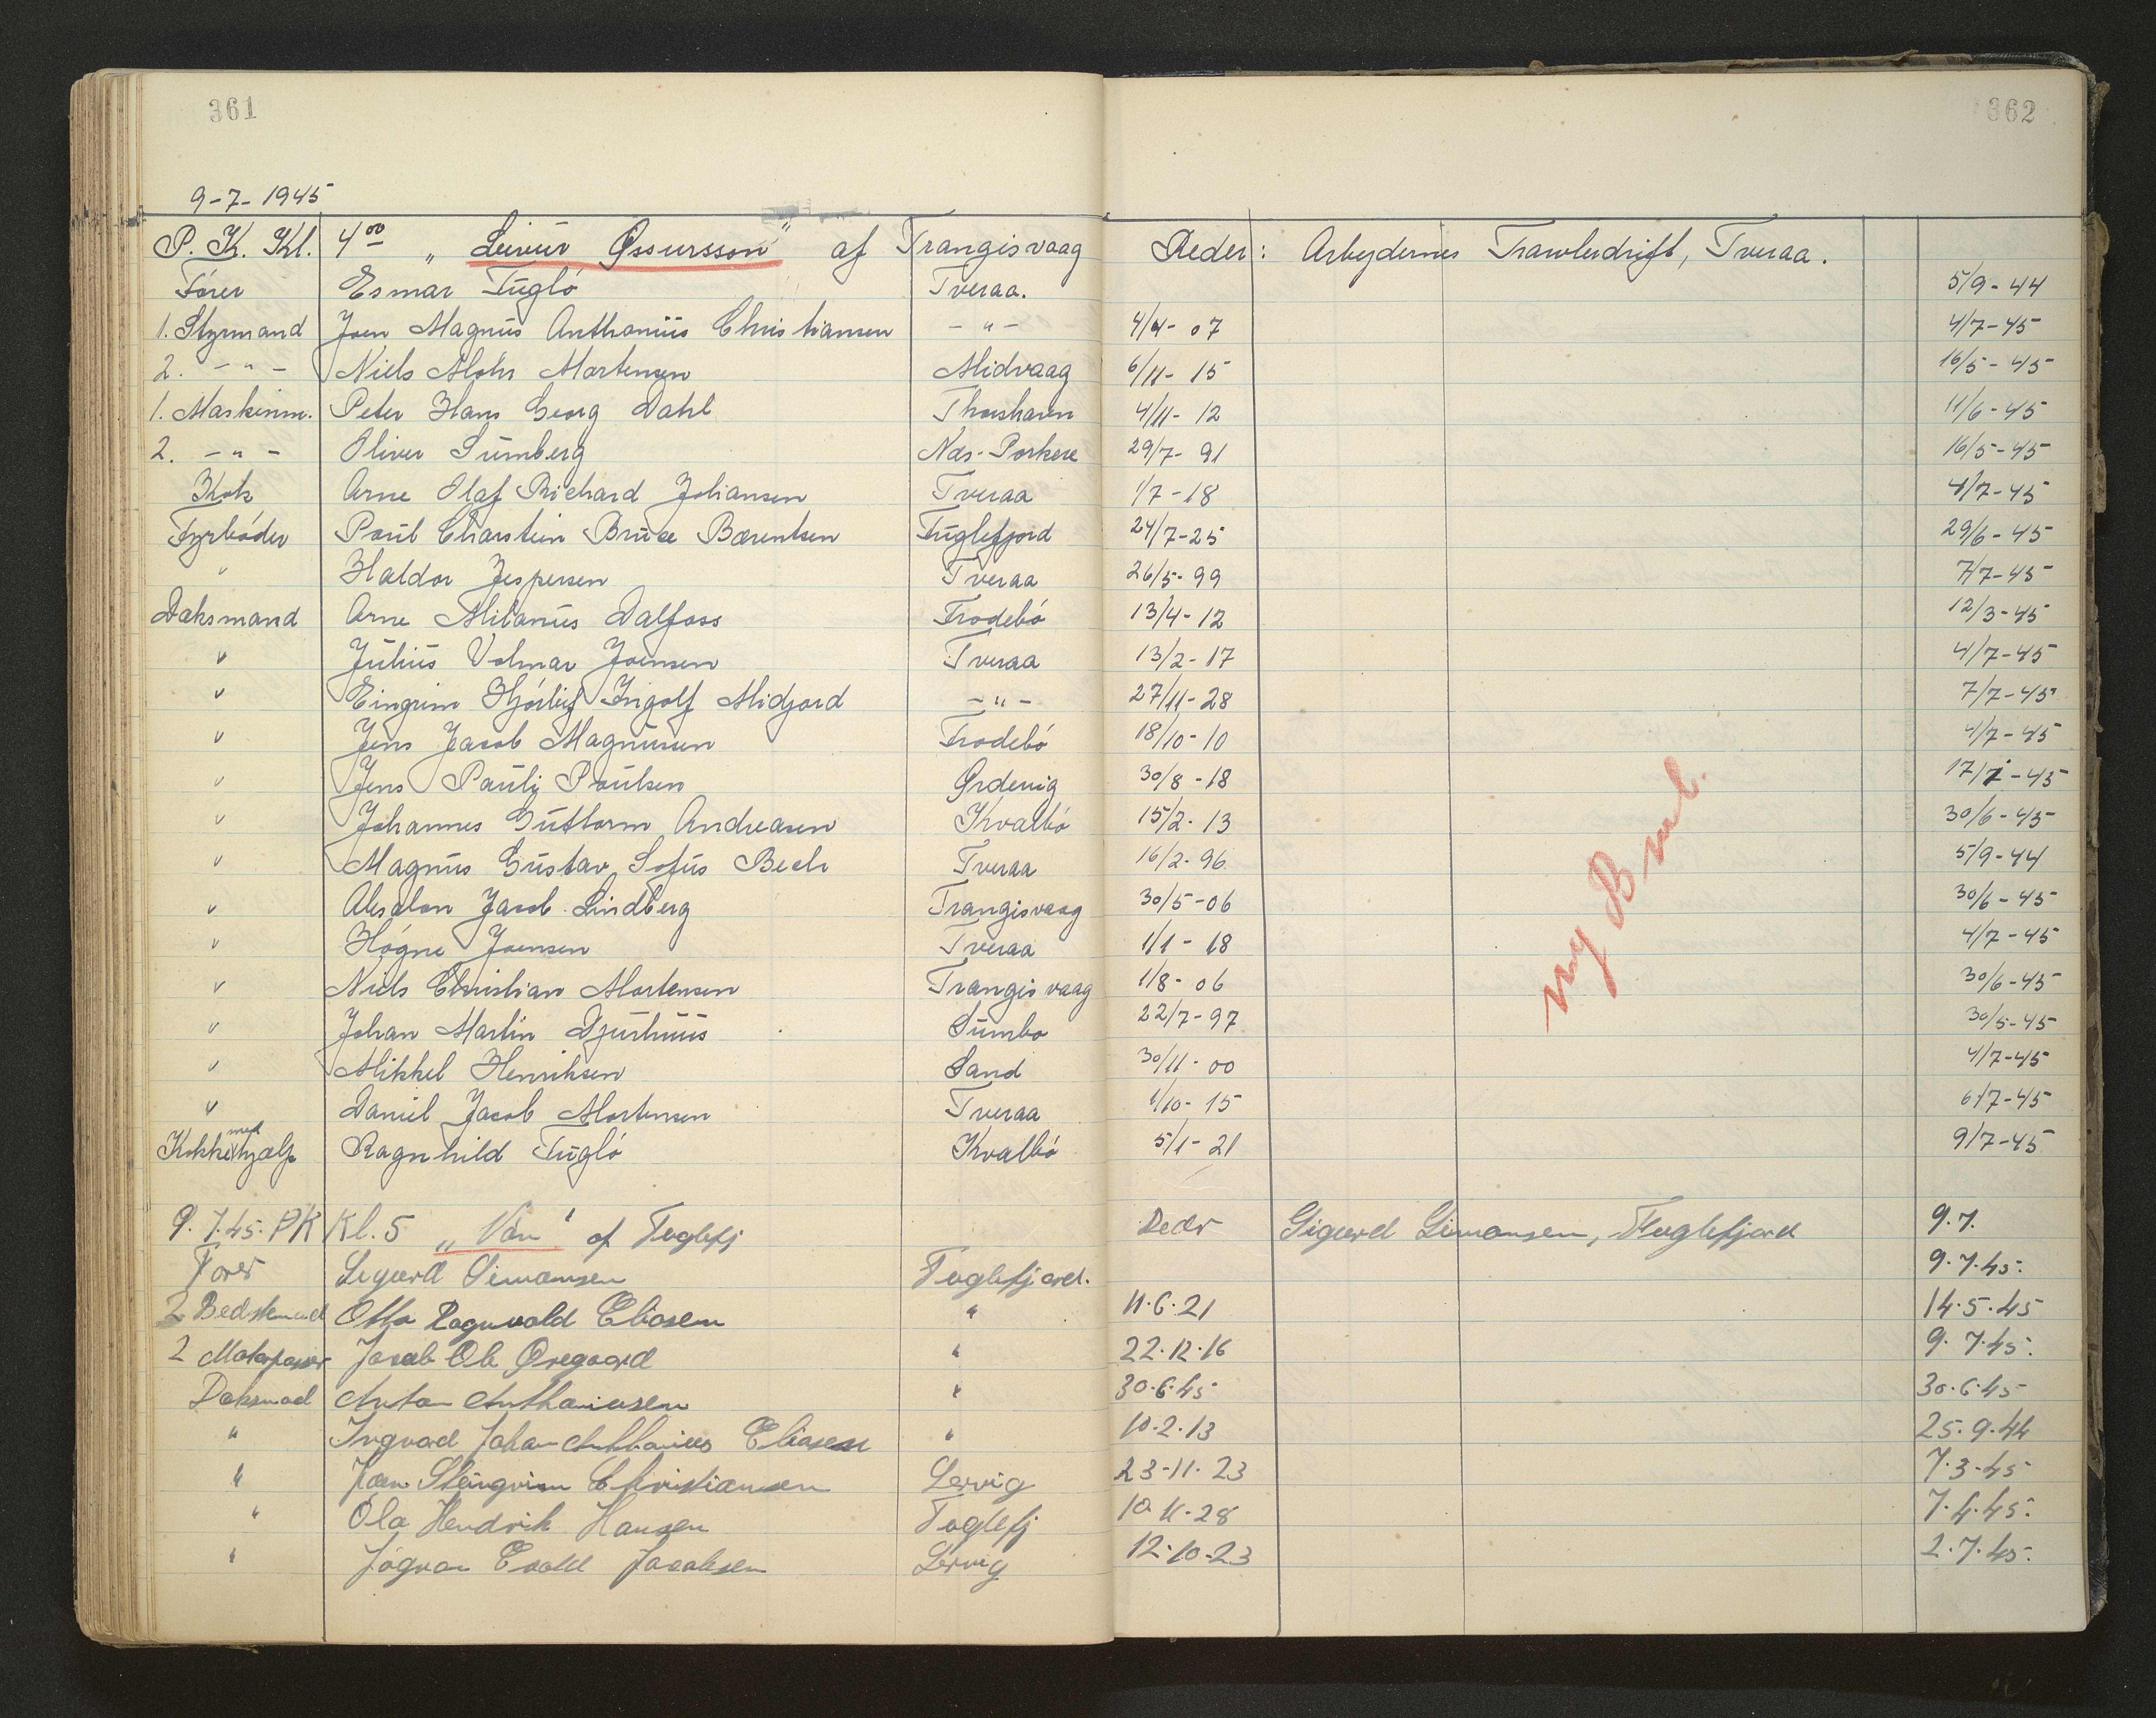 361
362
9-7-1945
P. K. Kl. 4 00 „Leivur Øssursson" af Trangisvaag Reder: Arbejdernes Trawlerdrift, Tveraa.
Fører Esmar Fugló Tveraa. 5/9-44
1. Styrmand Joen Magnus Anthonius Christiansen -"- 4/4-07 4/7-45
2. -"- Niels Mohr Mortensen Midvaag 6/11-15 16/5-45
1. Maskinm. Peter Hans Georg Dahl Thorshavn 4/11-12 11/6-45
2. -"- Oliver Sumberg Næs-Porkere 29/7-91 16/5-45
Kok Arne Olaf Richard Johansen Tveraa 1/7-18 4/7-45
Fyrbøder Poul Charstein Bruce Bærentsen Fuglefjord 24/7-25 29/6-45
" Haldor Jespersen Tveraa 26/5-99 7/7-45
Dæksmand Arne Milanus Dalfoss Frodebó 13/4-12 12/3-45
" Julius Volmar Joensen Tveraa 13/2-17 4/7-45
" Eingrim Hjórleif Ingolf Midjord -"- 27/11-28 7/7-45
" Jens Jacob Magnussen Frodebó 18/10-10 4/7-45
" Jens Pauli Poulsen Ørdevig 30/8-18 17/7-45
" Johannes Guttorm Andreasen Kvalbó 15/2-13 30/6-45
" Magnus Gustav Sofus Bech Tveraa 16/2-96 5/9-44
" Absalon Jacob Lindberg Trangisvaag 30/5-06 30/6-45
" Høgne Joensen Tveraa 1/1-18 4/7-45
" Niels Christian Mortensen Trangisvaag 1/8-06 30/6-45
" Johan Martin Djurhuus Sumbo 22/7-97 30/5-45
" Mikkel Henriksen Sand 30/11-00 4/7-45
" Daniel Jacob Mortensen Tveraa 1/10-15 6/7-45
Kokkemedhjælp Ragnhild Fugló Kvalbó 5/1-21 9/7-45
ny B
9.7.45. PK Kl. 5 „Ván" af Fuglefj Reder Sigurd Simonsen, Fuglefjord 9.7.
Fører Sigurd Simonsen Fuglefjord. 9.7.45.
2 Bedstemand Otto Rognvald Eliasen " 11.6.21 14.5.45
2 Motorpasser Jacob Ole Øregaard " 22.12.16 9.7.45.
Dæksmad Anton Anthoniussen " 30.6.45 30.6.45
" Ingvard Johan Anthonius Eliasen " 10.2.13 25.9.44
" Joen Steingrim Christiansen Lervig 23-11-23 7.3.45
" Óla Hendrik Hansen Fuglefj 10.11.28 7.4.45.
" Jógvan Evald Jacobsen Lervig 12-10-23 2.7.45.